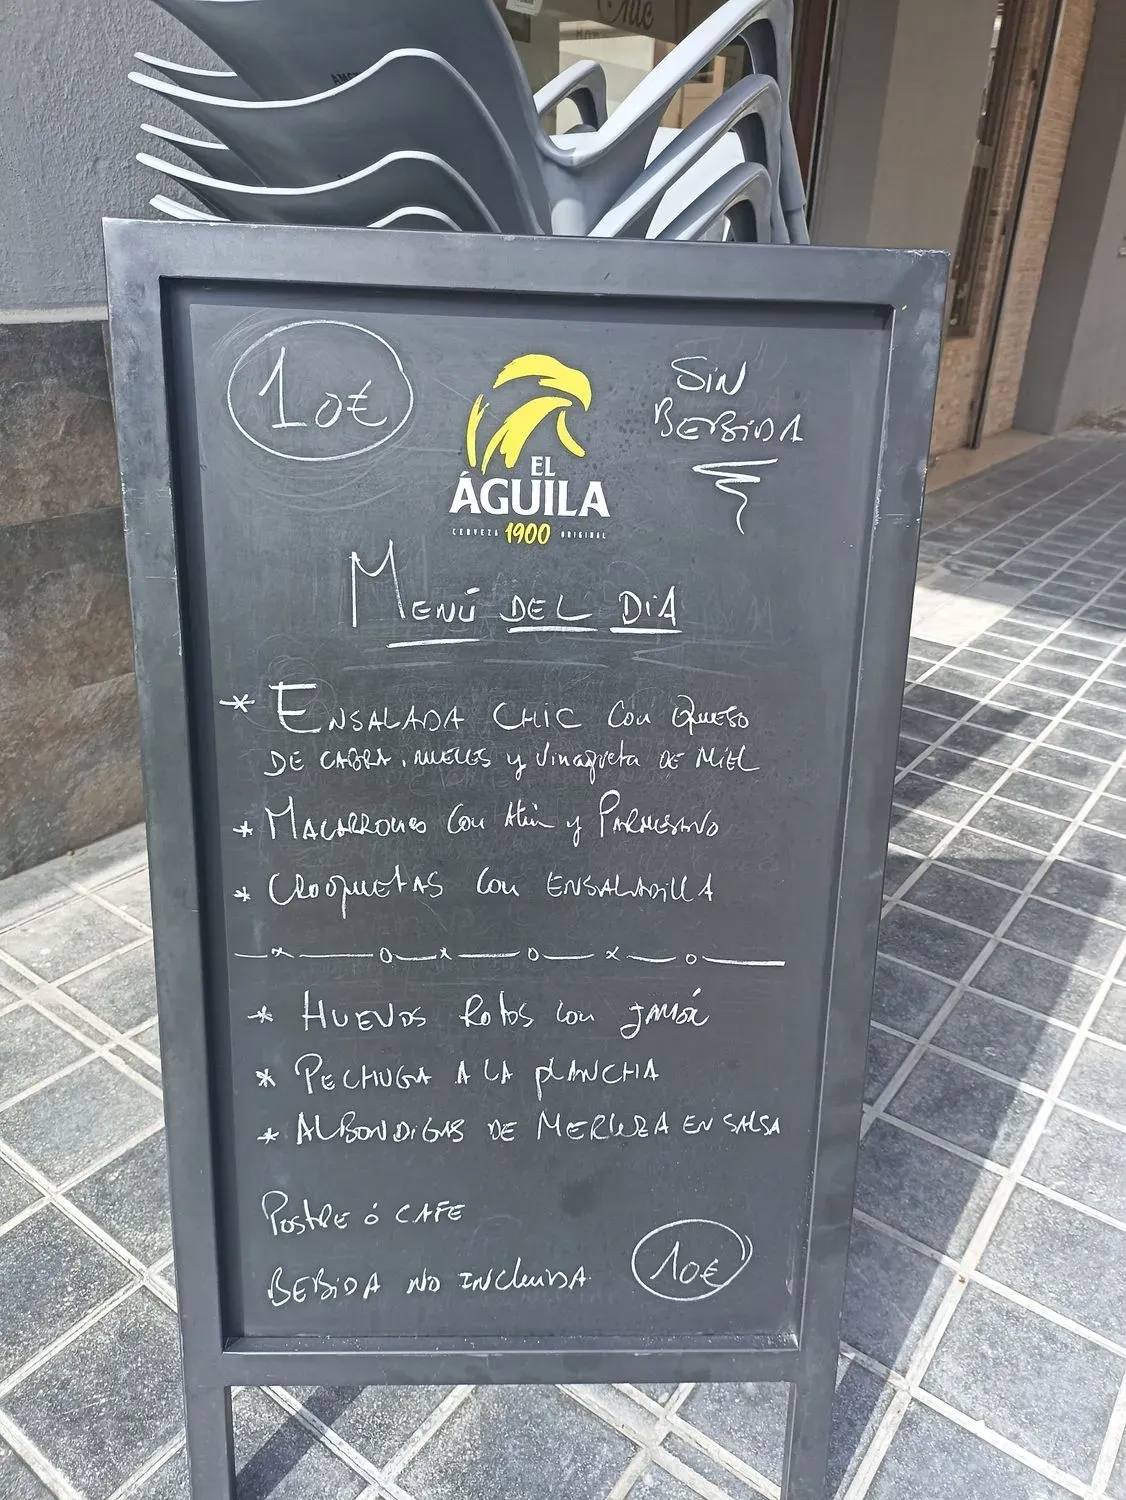 10€
SiN
BEBiDA
EL
ÁGUILA
CERVEZA 1900 ORIGINAL
MENÚ DEL DiA
* ENSALADA CHiC CoN QUESO
DE CABRA, NUECES y Vinagreta DE MiEL
* MACARRONES Con Atún y PARMESANO
* CROQUETAS Con ENSALADILLA
* HUEVOS Rotos con JAMÓN
* PECHUGA A LA PLANCHA
* ALBONDIGAS DE MERLUZA EN SALSA
POSTRE ó CAFE
BEBiDA NO INCLUiDA 10€